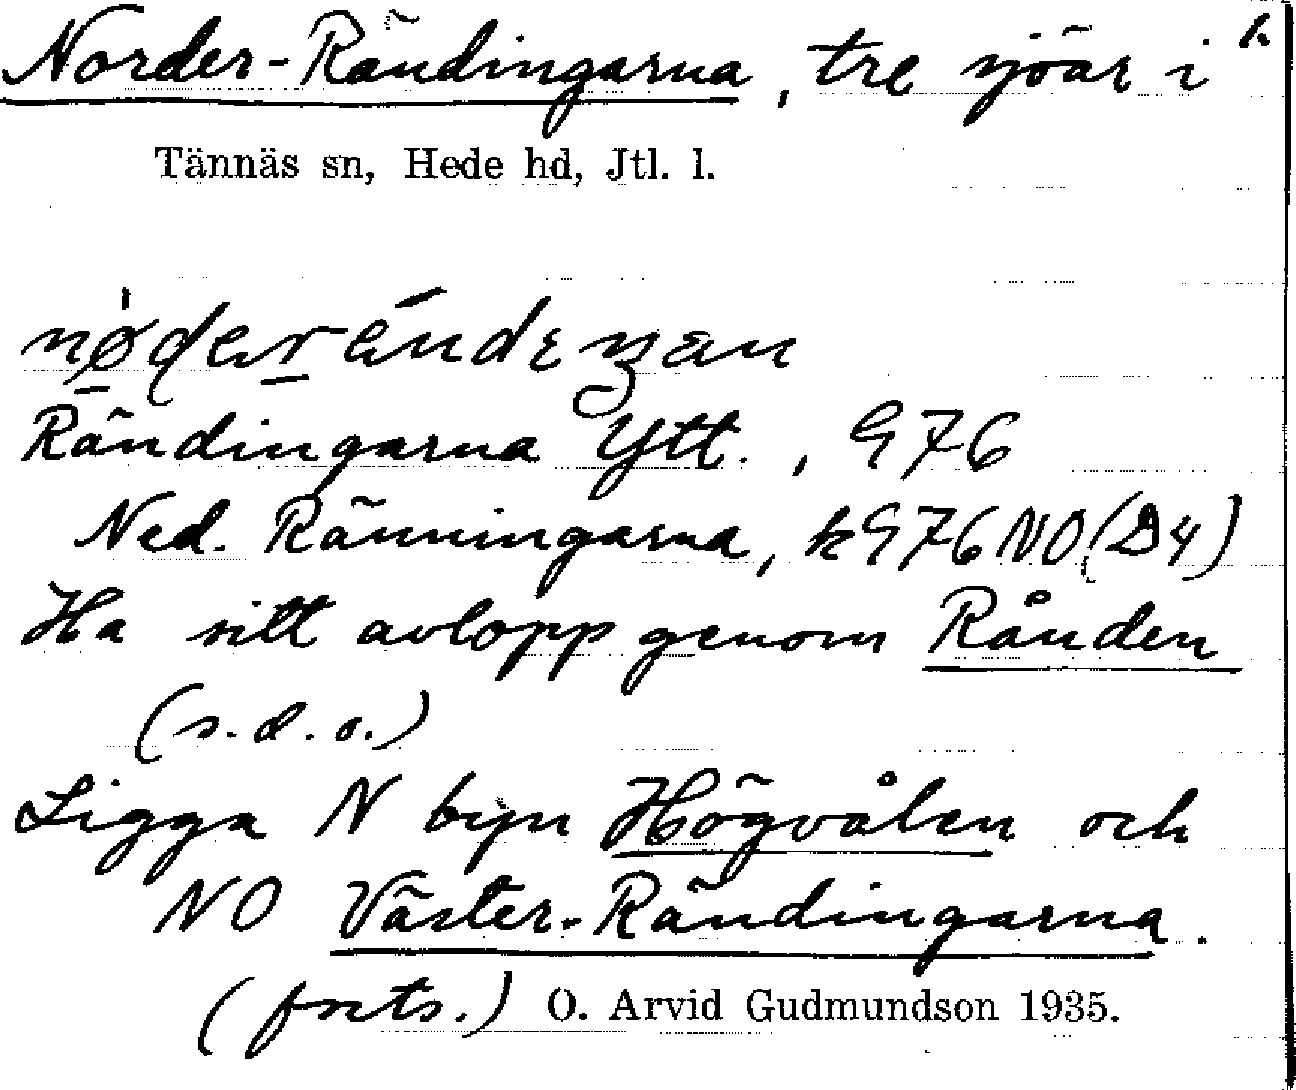 Norder-Rändingarna, tre sjöar i h
Tännäs sn, Hede hd, Jtl. l.
Rändingarna Ytt., G76
Ned. Ränningarna, kG76NO(D4)
Ha sitt avlopp genom Rånden
(s.d.o.)
Ligga N byn Högvålen och
NO Väster-Rändingarna.
(forts.) O. Arvid Gudmundson 1935.